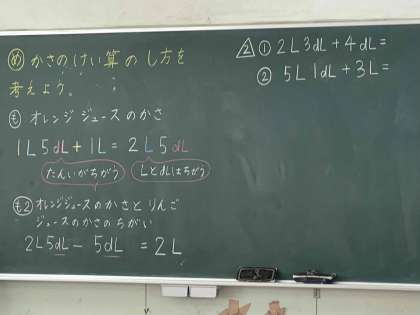 め かさのけい算のし方を
考えよう。
も オレンジジュースのかさ
1L5dL+1L=2L5dL
たんいがちがう
LとdLはちがう
も2 オレンジジュースのかさとりんご
ジュースのかさのちがい
2L5dL-5dL=2L
2 ① 2L3dL+4dL=
② 5L1dL+3L=